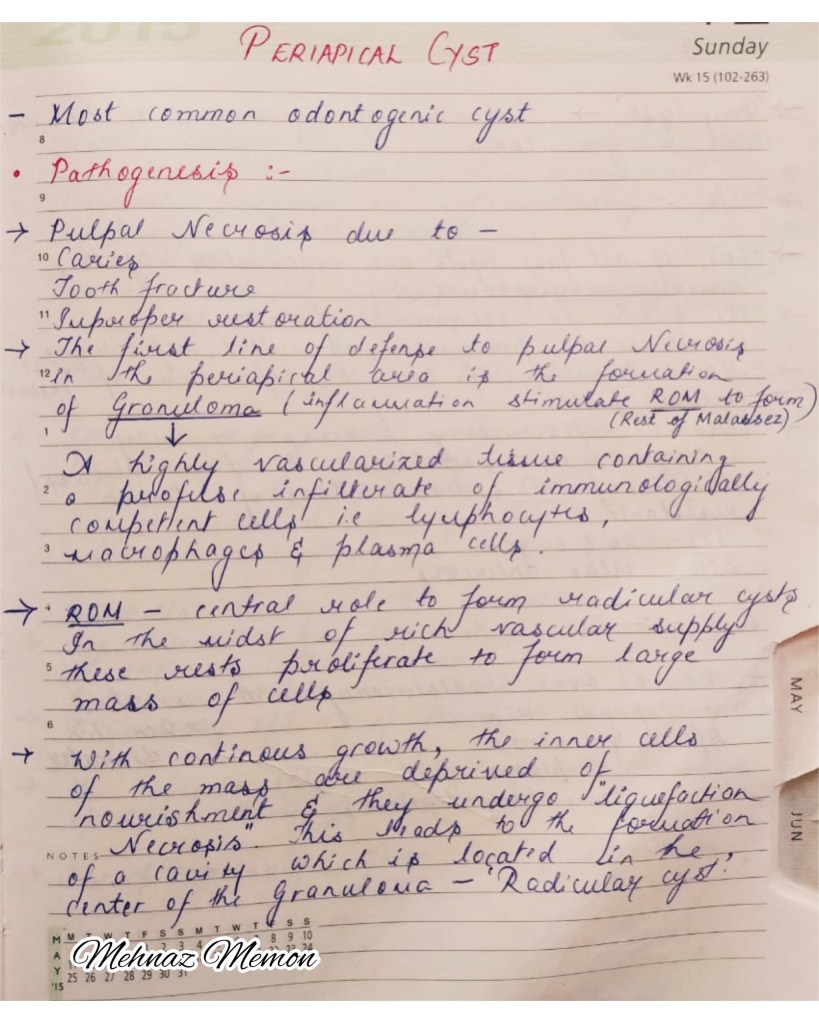 2015
PERIAPICAL CYST
Sunday
Wk 15 (102-263)
- Most common odontogenic cyst
8
• Pathogenesis :-
9
→ Pulpal Necrosis due to -
10 Caries
Tooth fracture
11 Improper restoration
→ The first line of defense to pulpal Necrosis
12 In the periapical area is the formation
of Granuloma (inflammation stimulate ROM to form)
(Rest of Malassez)
1
↓
A highly vascularized tissue containing
2 a profuse infilterate of immunologically
competent cells i.e lymphocytes,
3 macrophages & plasma cells.
→ 4 ROM - central role to form radicular cysts
In the midst of rich vascular supply
5 these rests proliferate to form large
mass of cells
6
→ With continous growth, the inner cells
of the mass are deprived of
nourishment & they undergo "liquefaction
Necrosis". This leads to the formation
NOTES
of a cavity which is located in he
center of the Granuloma - 'Radicular cyst'.
MAY
JUN
M T W T F S S M T W T F S S
8 9 10
25 26 27 28 29 30 31
MAY '15
Mehnaz Memon